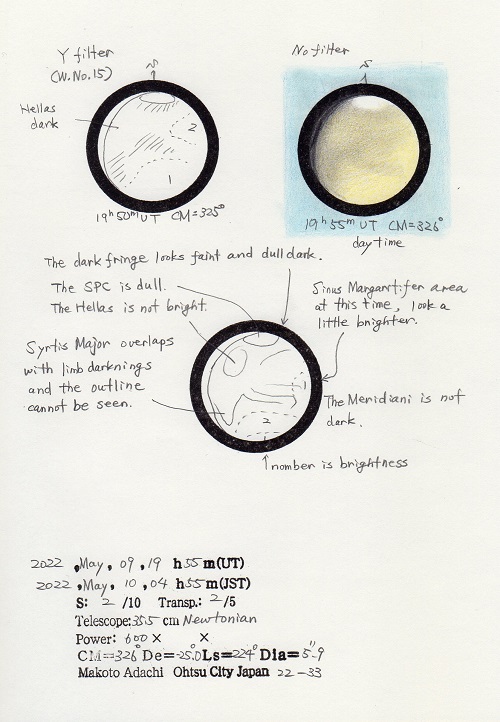 Y filter
(W.No.15)
S
Hellas
dark
2
1
19h 50m UT CM=325°
No filter
S
19h 55m UT CM=326°
day time
The dark fringe looks faint and dull dark.
The SPC is dull.
The Hellas is not bright.
Sinus Margaritifer area
at this time, look a
little brighter.
Syrtis Major overlaps
with limb darknings
and the outline
cannot be seen.
1
2
The Meridiani is not
dark.
nomber is brightness
2022 , May, 09, 19 h 55 m (UT)
2022 , May, 10, 04 h 55 m (JST)
S: 2 /10 Transp.: 2 /5
Telescope: 35.5 cm Newtonian
Power: 600 × ×
CM=326° De=-25.0° Ls=224° Dia=5".9
Makoto Adachi Ohtsu City Japan 22-33